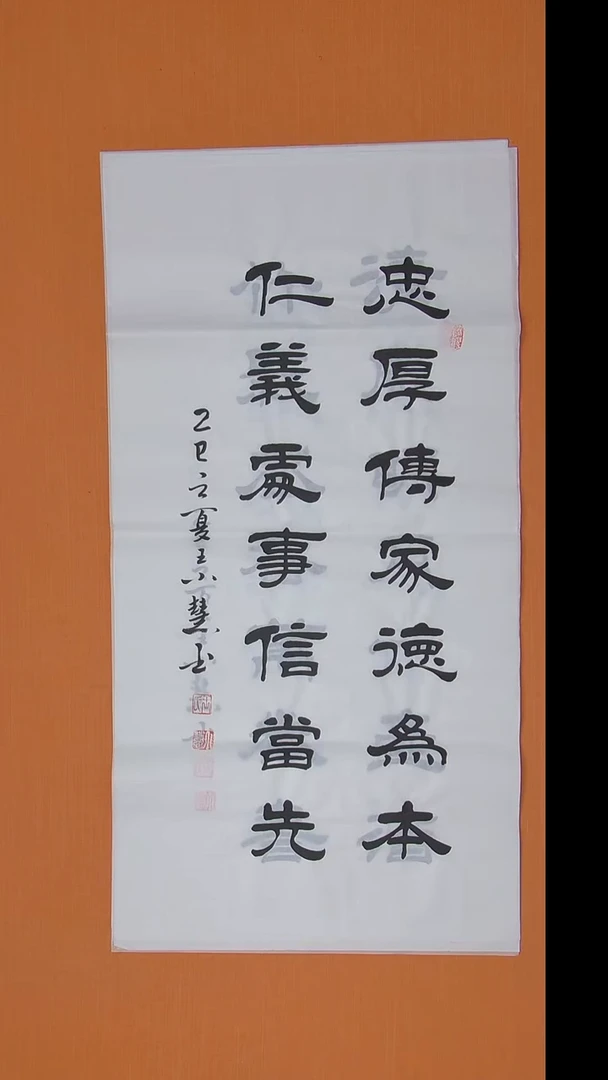 忠厚傳家德為本
仁義處事信當先
乙巳之夏王小慧书